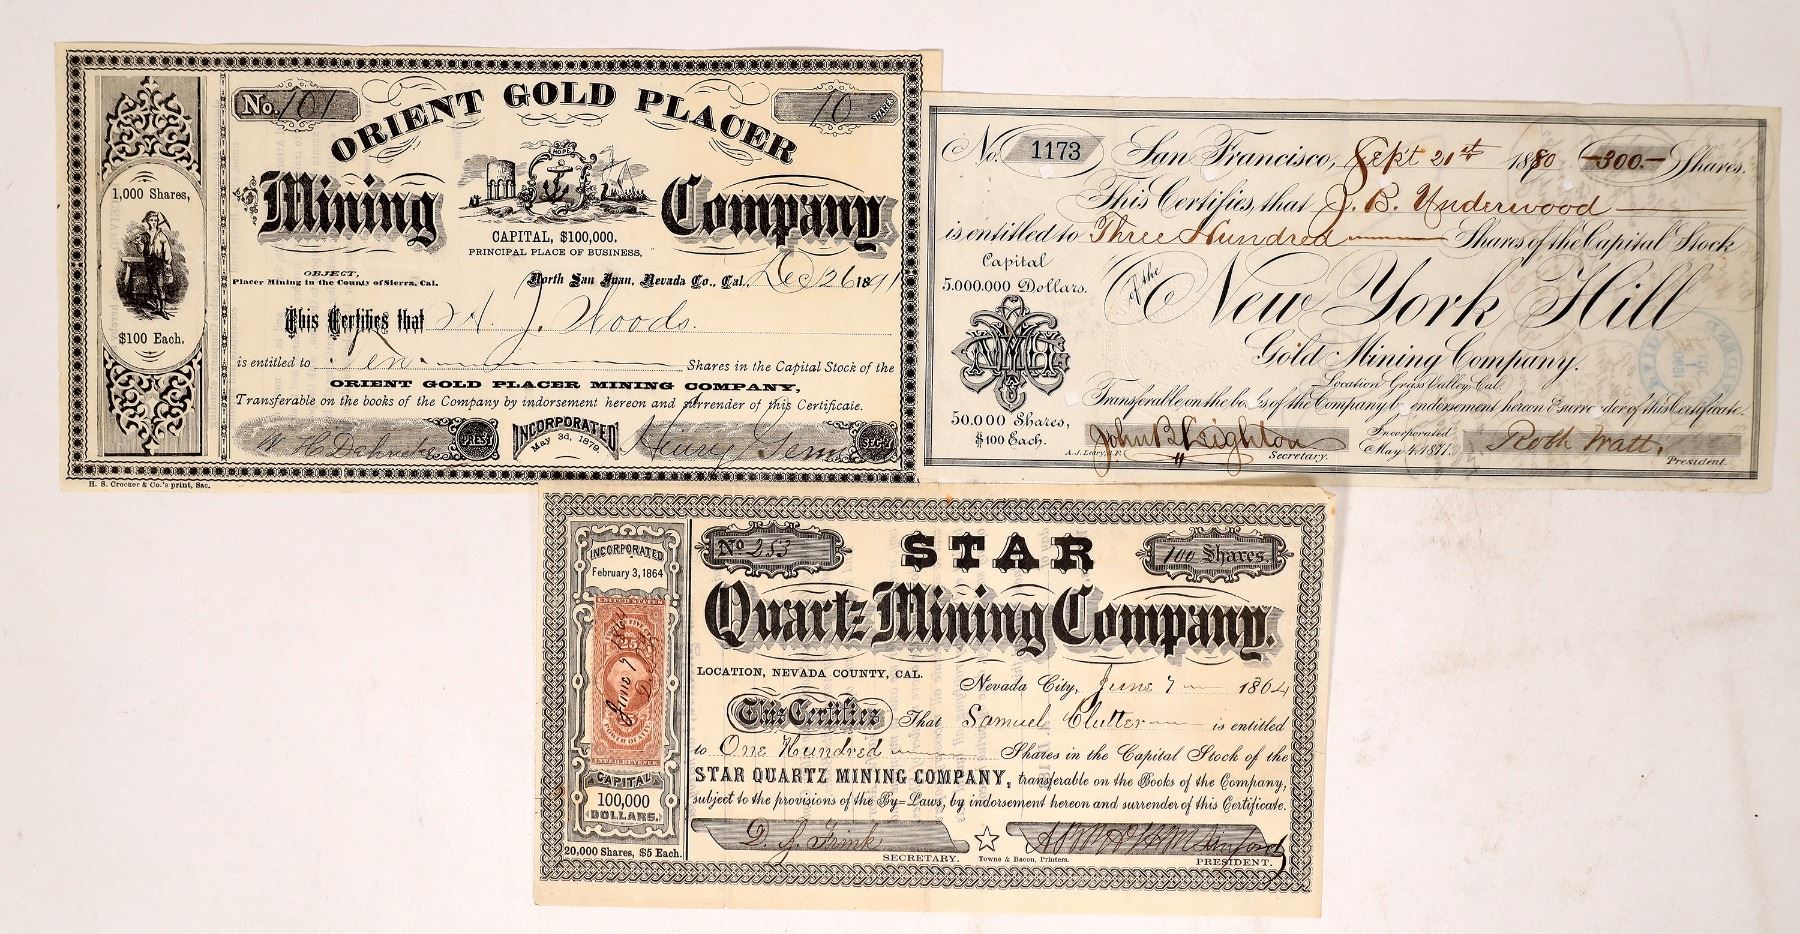 No. 101
ORIENT GOLD PLACER
10 SHARES
Mining Company
HOPE
1,000 Shares,
$100 Each.
CAPITAL, $100,000.
PRINCIPAL PLACE OF BUSINESS,
OBJECT,
Placer Mining in the County of Sierra, Cal.
North San Juan, Nevada Co., Cal., Dec 26 1891
This Certifies that H. J. Woods.
is entitled to Ten Shares in the Capital Stock of the
ORIENT GOLD PLACER MINING COMPANY,
Transferable on the books of the Company by indorsement hereon and surrender of this Certificate.
PREST.
INCORPORATED
May 3d, 1879.
Henry
SECY.
H. S. Crocker & Co.'s print, Sac.
No. 1173 San Francisco, Sept 21st 1880 -300.- Shares.
This Certifies, that J. B. Underwood
is entitled to Three Hundred Shares of the Capital Stock
Capital
5.000.000 Dollars.
of the
New York Hill
Gold Mining Company.
Location Grass Valley, Cal.
Transferable on the books of the Company by endorsement hereon & surrender of this Certificate.
50.000 Shares,
$100 Each.
John B Leighton
Secretary.
Incorporated
May 4, 1871.
Robt Watt.
President.
INCORPORATED
February 3, 1864
No 253
STAR
100 Shares
Quartz Mining Company.
LOCATION, NEVADA COUNTY, CAL.
Nevada City, June 7 1864
This Certifies That Samuel Clutter is entitled
to One Hundred Shares in the Capital Stock of the
STAR QUARTZ MINING COMPANY, transferable on the Books of the Company,
subject to the provisions of the By=Laws, by indorsement hereon and surrender of this Certificate.
UNITED STATES
25
June 7 1864
POWER OF ATT'Y
INTER. REVENUE
CAPITAL
100,000
DOLLARS.
20,000 Shares, $5 Each.
D. G. Frink
SECRETARY.
Towne & Bacon, Printers.
PRESIDENT.